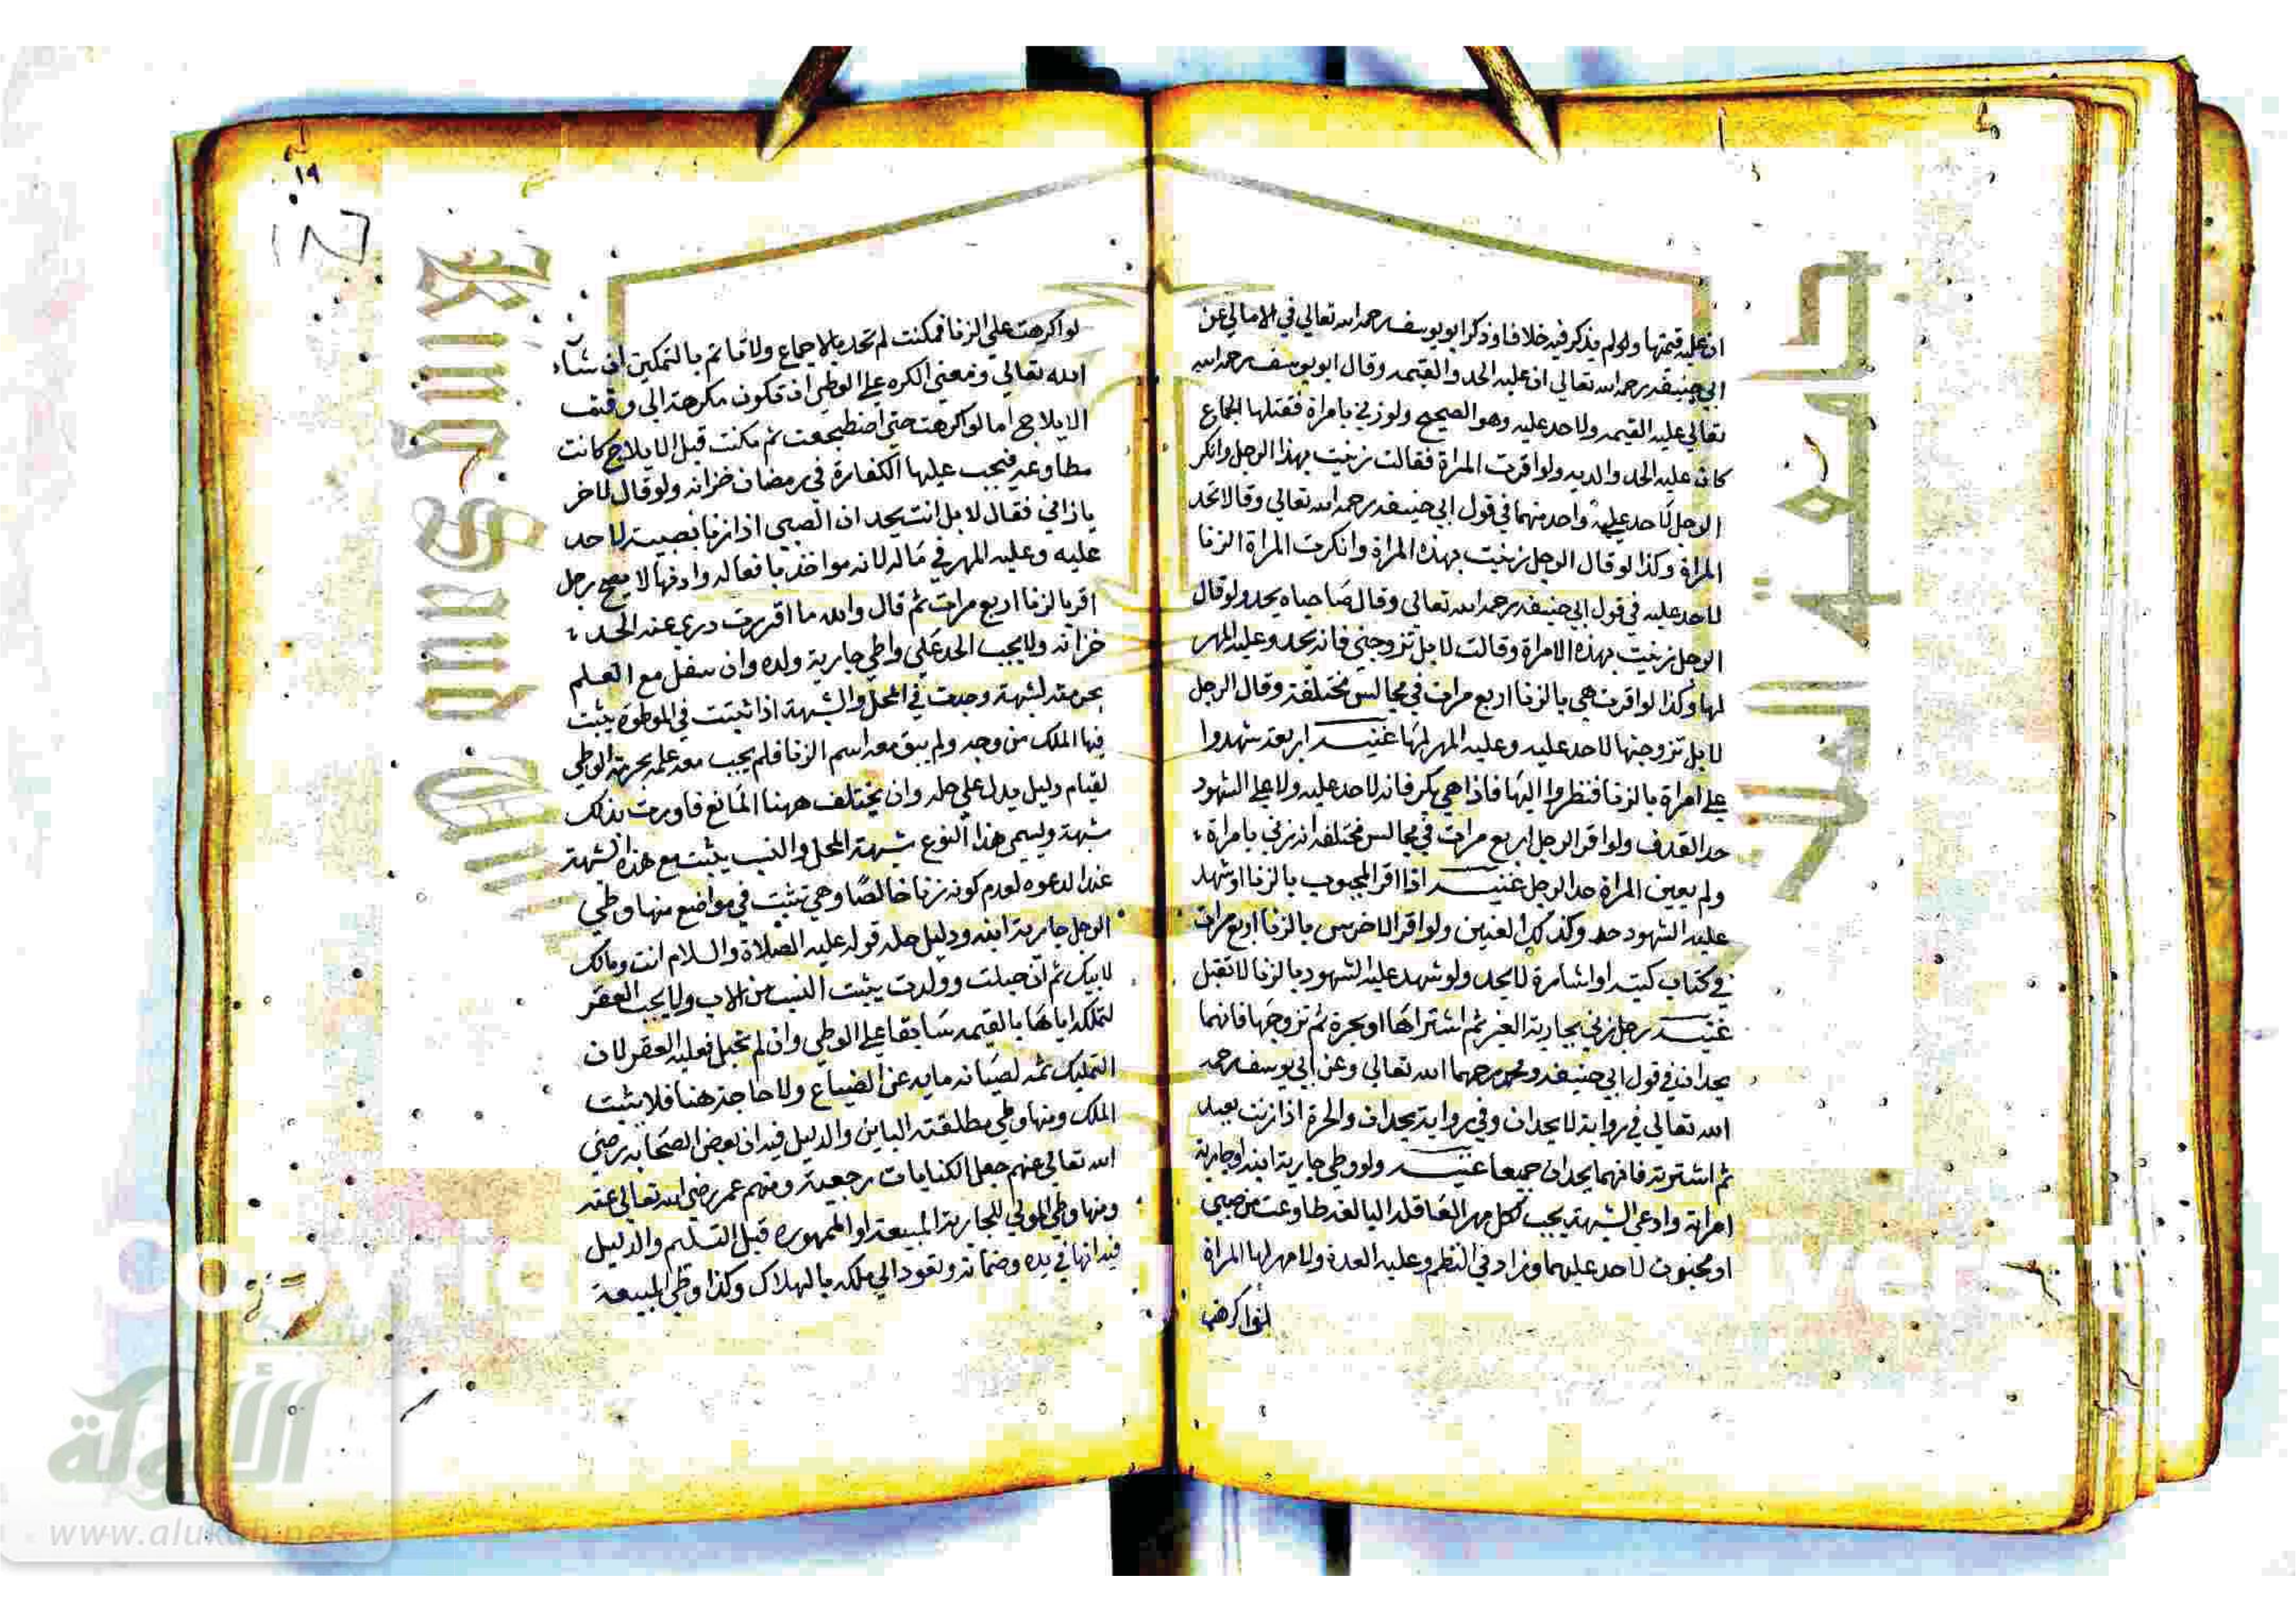 ان عليه قيمتها ولو لم يذكر فيه خلافا وذكر ابو يوسف رحمه الله تعالي في الامالي عن
ابي حنيفه رحمه الله تعالي ان عليه الحد والقيمه وقال ابو يوسف رحمه الله
تعالي عليه القيمه ولا حد عليه وهو الصحيح ولو زني بامراة فقتلها الجماع
كان عليه الحد والديه ولو اقرت المراة فقالت زنيت بهذا الرجل وانكر
الرجل لا حد علي واحد منهما في قول ابي حنيفه رحمه الله تعالي وقالا تحد
المراة وكذا لو قال الرجل زنيت بهذه المراة وانكرت المراة الزنا
لا حد عليه في قول ابي حنيفه رحمه الله تعالي وقال صاحباه يحد ولو قال
الرجل زنيت بهذه الامراة وقالت لا بل تزوجني فانه يحد وعليه المهر
لها وكذا لو اقرت هي بالزنا اربع مرات في مجالس مختلفة وقال الرجل
لا بل تزوجتها لا حد عليه وعليه المهر لها غنيه اربعة شهدوا
علي امراة بالزنا فنظروا اليها فاذا هي بكر فانه لا حد عليه ولا علي الشهود
حد القذف ولو اقر الرجل اربع مرات في مجالس مختلفه انه زني بامراة
ولم يعين المراة حد الرجل غنيه اذا اقر المجبوب بالزنا او شهد
عليه الشهود حد وكذلك العنين ولو اقر الاخرس بالزنا اربع مرات
في كتاب كتبه او اشارة لا يحد ولو شهد عليه الشهود بالزنا لا تقبل
غنيه رجل زني بجارية الغير ثم اشتراها او بحرة ثم تزوجها فانهما
يحدان في قول ابي حنيفه ومحمد رحمهما الله تعالي وعن ابي يوسف رحمه
الله تعالي في رواية لا يحدان وفي رواية يحدان والحرة اذا زنت بعبد
ثم اشترته فانهما يحدان جميعا غنيه ولو وطي جارية ابنه او جارية
امراته وادعي الشبهة يجب كل مهر العاقله البالغه طاوعت من صبي
او مجنون لا حد عليهما وزاد في النظم وعليه العدة ولا مهر لها المراة
لو اكرهت
١٩
لو اكرهت علي الزنا فمكنت لم تحد بالاجماع ولا تاثم بالتمكين ان شاء
الله تعالي ومعني الكره علي الوطي ان تكون مكرهة الي وقت
الايلاج اما لو اكرهت حتي اضطجعت ثم مكنت قبل الايلاج كانت
مطاوعة فيجب عليها الكفارة في رمضان خزانه ولو قال لاخر
يا زاني فقال لا بل انت يحدان الصبي اذا زنا بصبية لا حد
عليه وعليه المهر في ماله لانه مواخذ بافعاله واذنها لا يصح رجل
اقر بالزنا اربع مرات ثم قال والله ما اقررت دري عنه الحد
خزانه ولا يجب الحد علي واطي جارية ولده وان سفل مع العلم
بحرمته لشبهة وجدت في المحل والشبهة اذا ثبتت في الموطوة يثبت
فيها الملك من وجه ولم يبق معه اسم الزنا فلم يجب معه علمه بحرمة الوطي
لقيام دليل يدل علي حله وان تختلف ههنا المانع فاورث بذلك
شبهة ويسمي هذا النوع شبهة المحل والنسب يثبت مع هذه الشبهة
عند الدعوه لعدم كونه زنا خالصا وهي تثبت في مواضع منها وطي
الرجل جارية ابنه ودليل حله قوله عليه الصلاة والسلام انت ومالك
لابيك ثم ان حبلت وولدت يثبت النسب من الاب ولا يجب العقر
لتملكه اياها بالقيمه سابقا علي الوطي وان لم تحبل فعليه العقر لان
التمليك ثمه لصيانه مايه عن الضياع ولا حاجة هنا فلا يثبت
الملك ومنها وطي مطلقته الباين والدليل فيه ان بعض الصحابه رضي
الله تعالي عنهم جعل الكنايات رجعية ومنهم عمر رضي الله تعالي عنه
ومنها وطي المولي للجارية المبيعة او الممهوره قبل التسليم والدليل
فيه انها في يده وضمانه وتعود الي ملكه بالهلاك وكذا وطي المبيعة
الألوكة
www.alukah.net